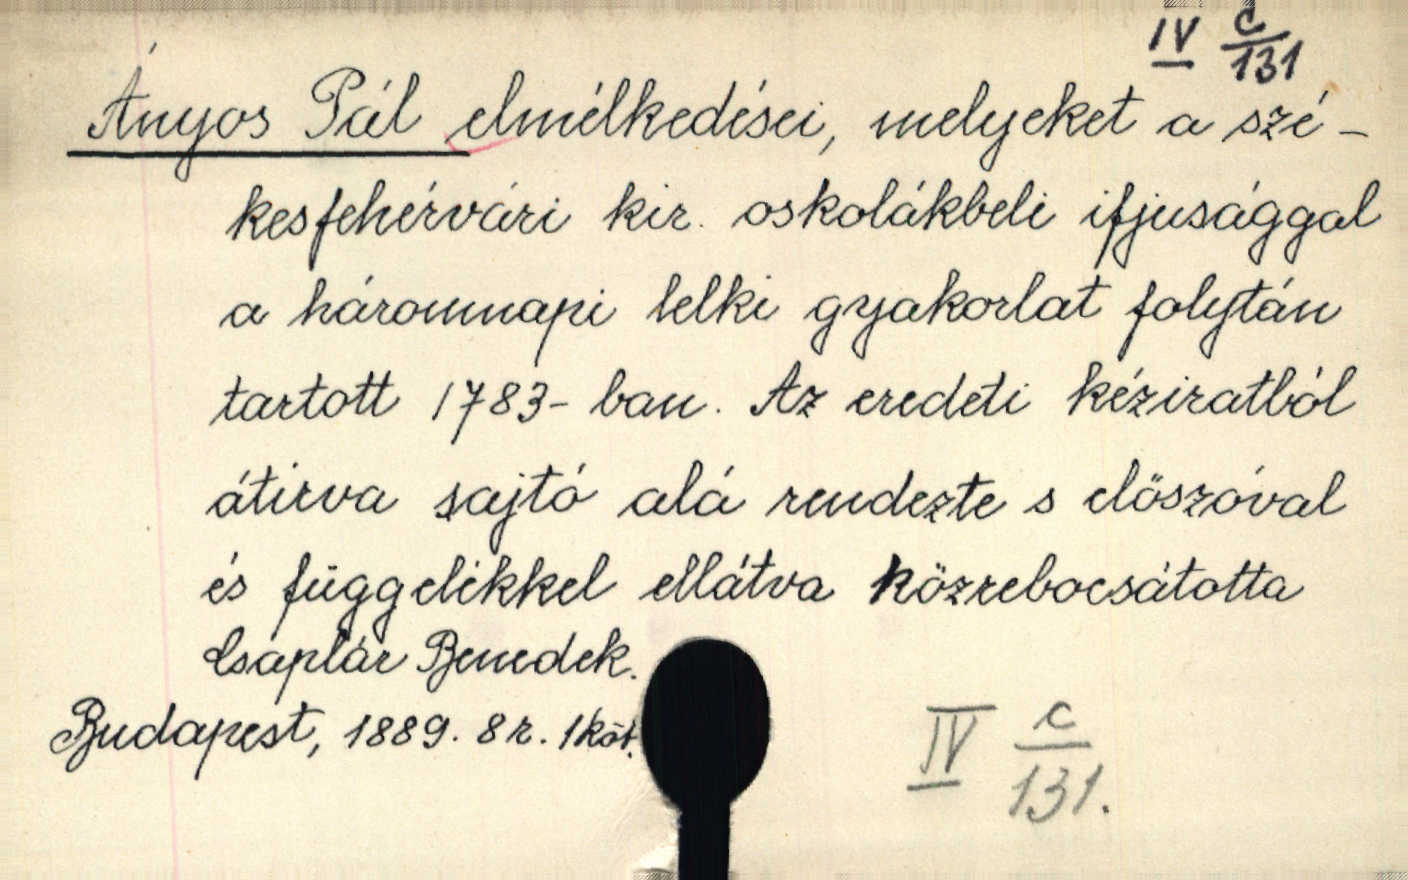 IV c/131
Ányos Pál elmélkedései, melyeket a szé-
kesfehérvári kir. oskolákbeli ifjusággal
a háromnapi lelki gyakorlat folytán
tartott 1783-ban. Az eredeti kéziratból
átirva sajtó alá rendezte s előszóval
és függelékkel ellátva közrebocsátotta
Csaplár Benedek.
Budapest, 1889. 8r. 1köt.
IV c/131.